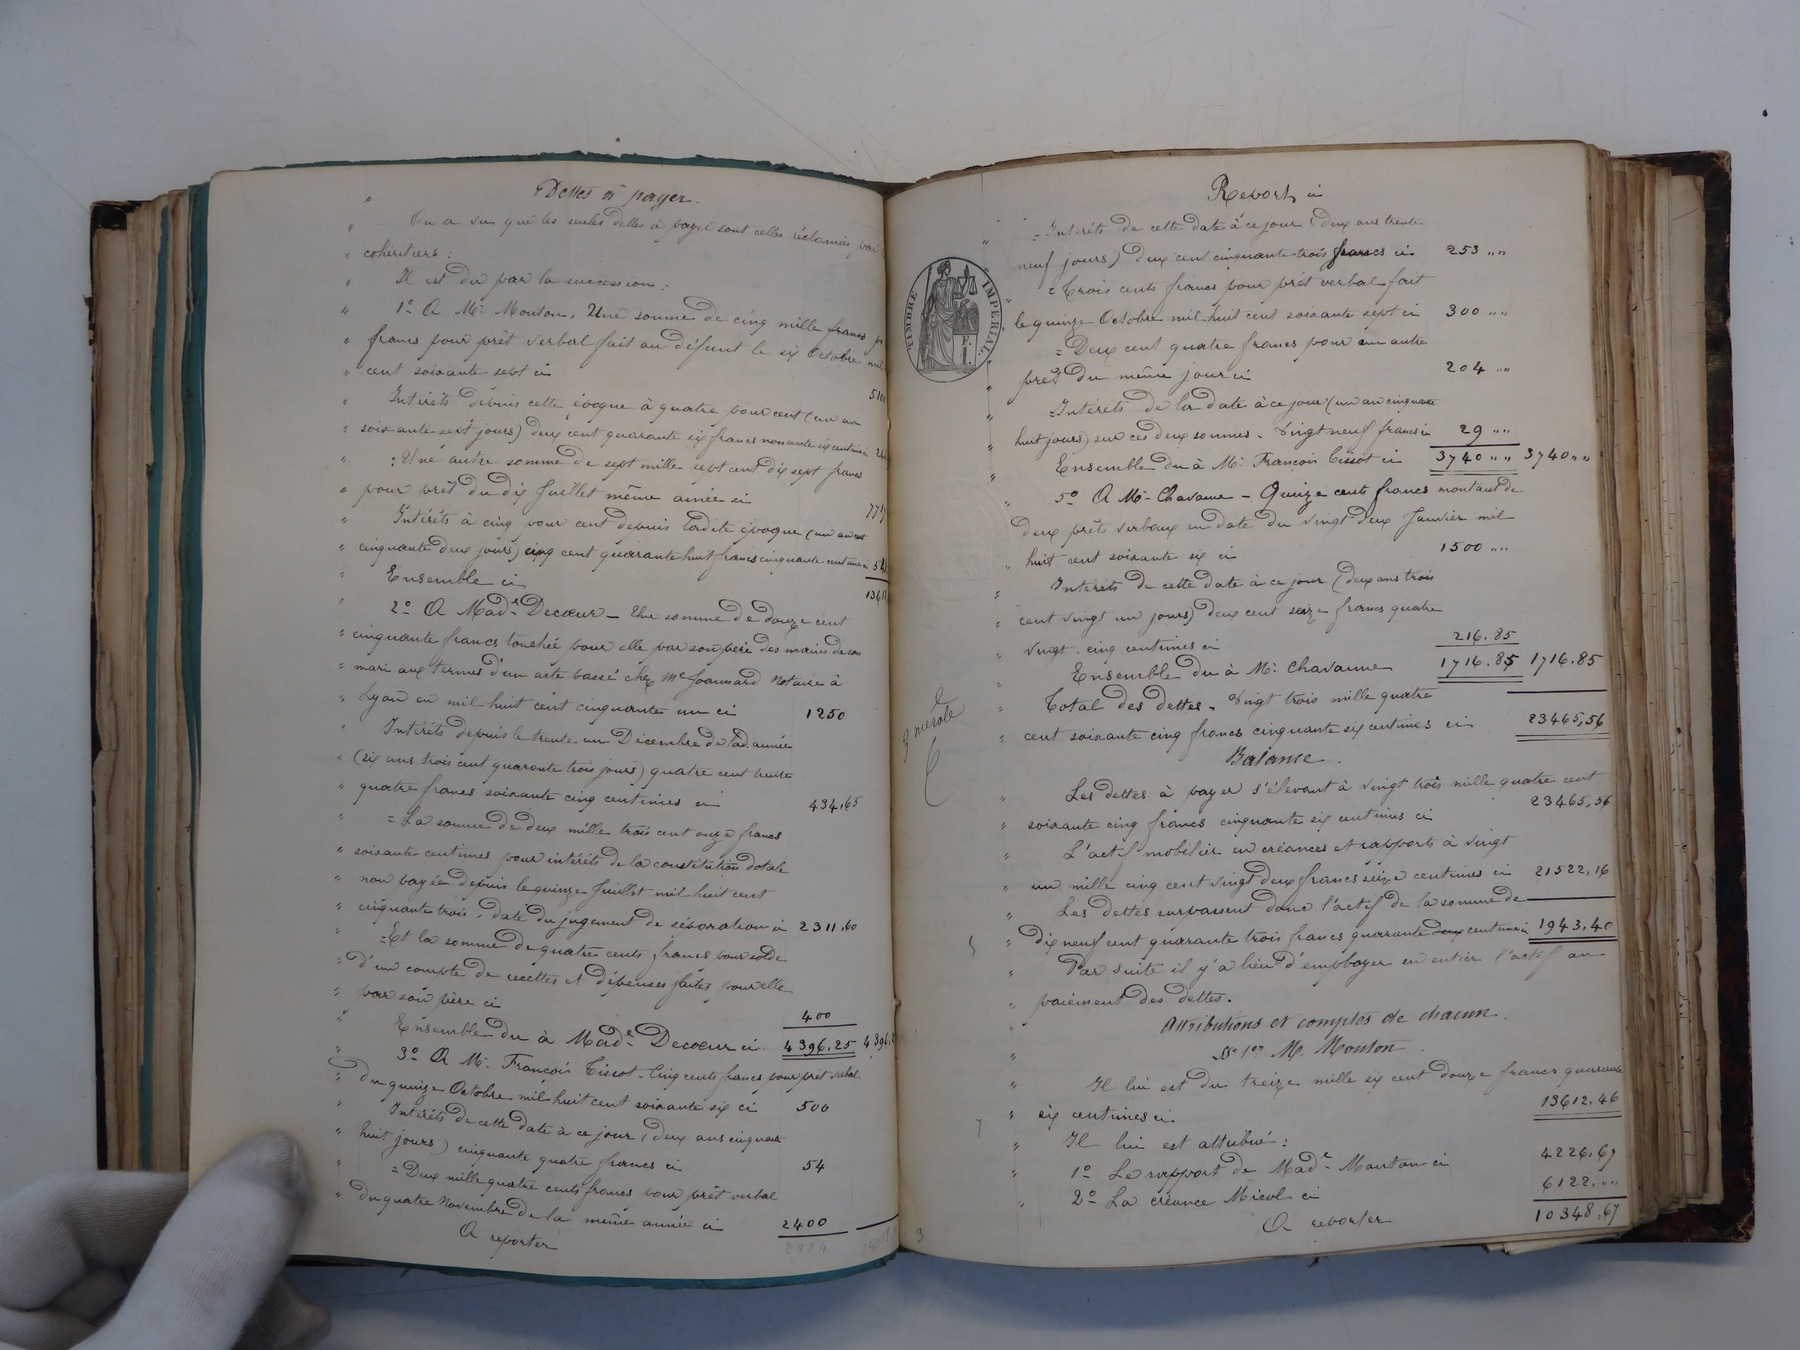 Dettes à payer.
On a vu que les seules dettes à payer sont celles réclamées par
cohéritiers :
Il est dû par la succession :
1º A Mr Mouton, Une somme de cinq mille francs
francs pour prêt verbal fait au défunt le six Octobre mil
cent soixante sept ci
Intérêts depuis cette époque à quatre pour cent (un an
soixante sept jours) deux cent quarante six francs
= Une autre somme de sept mille sept cent dix sept francs
pour prêt du dix Juillet même année ci
Intérêts à cinq pour cent depuis ladite époque (un an
cinquante deux jours) cinq cent quarante huit francs cinquante centimes ci
Ensemble ci
2º A Made Decœur - Une somme de douze cent
cinquante francs touchée pour elle par son père des mains de son
mari aux termes d'un acte passé chez Me Joannard Notaire à
Lyon en mil huit cent cinquante un ci 1250
Intérêts depuis le trente un Décembre de lad. année
(six ans trois cent quarante trois jours) quatre cent trente
quatre francs soixante cinq centimes ci 434,65
= La somme de deux mille trois cent onze francs
soixante centimes pour intérêts de la constitution dotale
non payée depuis le quinze Juillet mil huit cent
cinquante trois, date du jugement de séparation ci 2311,60
= Et la somme de quatre cents francs pour solde
d'un compte de recettes et dépenses faites pour elle
par son père ci 400
Ensemble du à Made Decœur ci 4396,25
3º A Mr François Tissot - Cinq cents francs pour prêt verbal
du quinze Octobre mil huit cent soixante six ci 500
Intérêts de cette date à ce jour (deux ans cinquante
huit jours) cinquante quatre francs ci 54
= Deux mille quatre cents francs pour prêt verbal
du quatre Novembre de la même année ci 2400
A reporter 2954
Report ci
= Intérêts de cette date à ce jour (deux ans trente
neuf jours) deux cent cinquante trois francs ci 253 ""
= Trois cents francs pour prêt verbal fait
le quinze Octobre mil huit cent soixante sept ci 300 ""
= Deux cent quatre francs pour un autre
prêt du même jour ci 204 ""
Intérêts de la date à ce jour (un an cinquante
huit jours) sur ces deux sommes - Vingt neuf francs ci 29 ""
Ensemble du à Mr François Tissot ci 3740 "" 3740 ""
5º A Mr Chavanne - Quinze cents francs montant de
deux prêts verbaux en date du vingt deux Janvier mil
huit cent soixante six ci 1500 ""
Intérêts de cette date à ce jour (deux ans trois
cent vingt un jours) deux cent seize francs quatre
vingt cinq centimes ci 216.85
Ensemble du à Mr Chavanne 1716.85 1716.85
Total des dettes - Vingt trois mille quatre
cent soixante cinq francs cinquante six centimes ci 23465,56
Balance.
Les dettes à payer s'élevant à vingt trois mille quatre cent
soixante cinq francs cinquante six centimes ci 23465,56
L'actif mobilier en créances et rapports à vingt
un mille cinq cent vingt deux francs seize centimes ci 21522,16
Les dettes surpassent donc l'actif de la somme de
dix neuf cent quarante trois francs quarante centimes ci 1943,40
Par suite il y'a lieu d'employer en entier l'actif au
paiement des dettes.
Attributions et comptes de chacun.
§ 1er M. Mouton.
Il lui est du treize mille six cent douze francs quarante
six centimes ci 13612,46
Il lui est attribué :
1º Le rapport de Made Mouton ci 4226,67
2º La créance Micol ci 6122,""
A reporter 10348,67
TIMBRE IMPERIAL